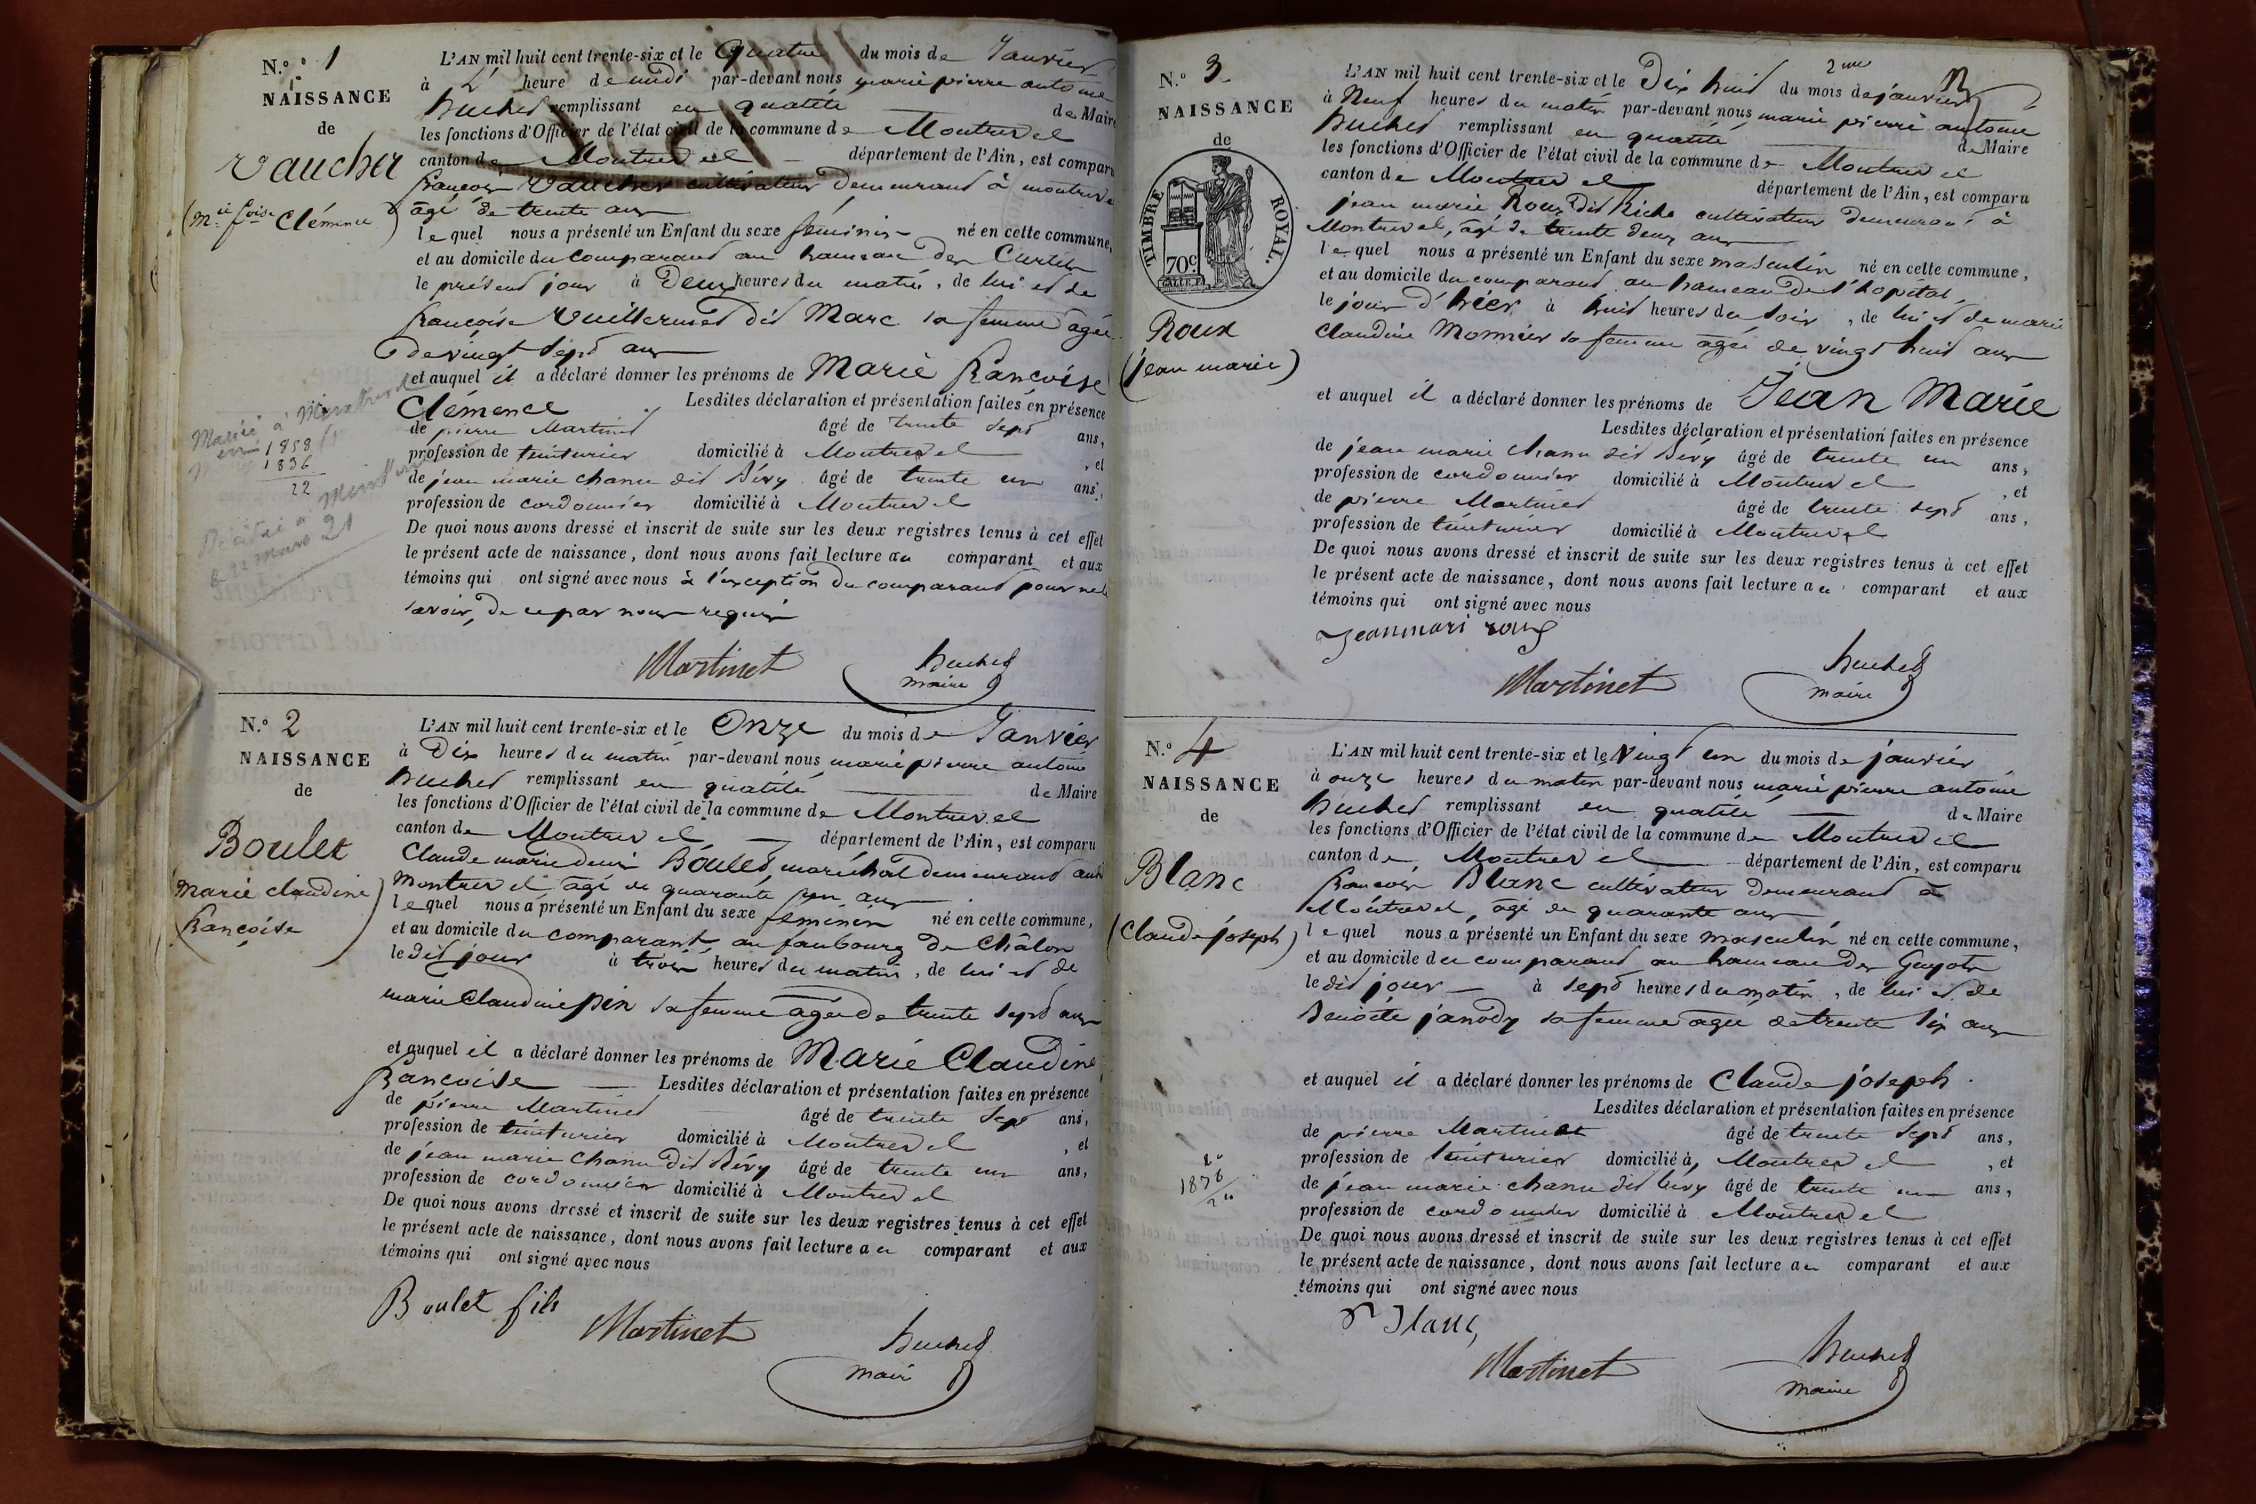 N.º 1
NAISSANCE
de
Vaucher
(Mie fçoise Clémence)
L'AN mil huit cent trente-six et le quatre du mois de Janvier
à L' heure de midi par-devant nous marie pierre antoine
huchet remplissant en qualité de Maire
les fonctions d'Officier de l'état civil de la commune de Montrevel
canton de Montrevel département de l'Ain, est comparu
françois Vaucher cultivateur demeurant à montrevel
âgé de trente ans
lequel nous a présenté un Enfant du sexe féminin né en cette commune,
et au domicile du comparant au hameau des Curtets
le présent jour à Deux heures du matin, de lui et de
françoise Vuillermet dit Marc sa femme agée
de vingt sept ans
et auquel il a déclaré donner les prénoms de Marie françoise
Clémence Lesdites déclaration et présentation faites en présence
de pierre Martinet âgé de trente sept ans,
profession de teinturier domicilié à Montrevel, et
de jean marie chanu dit Bévy âgé de trente un ans,
profession de cordonnier domicilié à Montrevel
De quoi nous avons dressé et inscrit de suite sur les deux registres tenus à cet effet
le présent acte de naissance, dont nous avons fait lecture au comparant et aux
témoins qui ont signé avec nous à l'exception du comparant pour ne le
savoir, de ce par nous requis
Martinet huchet
maire
Mariée à
1858
1836
22
N.º 2
NAISSANCE
de
Boulet
(marie claudine
françoise)
L'AN mil huit cent trente-six et le Onze du mois de Janvier
à Dix heures du matin par-devant nous marie pierre antoine
huchet remplissant en qualité de Maire
les fonctions d'Officier de l'état civil de la commune de Montrevel
canton de Montrevel département de l'Ain, est comparu
Claude marie denis Boulet, maréchal demeurant audit
montrevel âgé de quarante un ans
lequel nous a présenté un Enfant du sexe féminin né en cette commune,
et au domicile du comparant au faubourg de Châlon
ledit jour à trois heures du matin, de lui et de
marie Claudine pin sa femme âgée de trente sept ans
et auquel il a déclaré donner les prénoms de Marie Claudine
françoise Lesdites déclaration et présentation faites en présence
de pierre Martinet âgé de trente sept ans,
profession de teinturier domicilié à Montrevel, et
de jean marie chanu dit Bévy âgé de trente un ans,
profession de cordonnier domicilié à Montrevel
De quoi nous avons dressé et inscrit de suite sur les deux registres tenus à cet effet
le présent acte de naissance, dont nous avons fait lecture au comparant et aux
témoins qui ont signé avec nous
Boulet fils Martinet huchet
maire
2me
N.º 3
NAISSANCE
de
TIMBRE ROYAL.
70c
Roux
(jean marie)
L'AN mil huit cent trente-six et le Dix huit du mois de janvier
à Neuf heures du matin par-devant nous marie pierre antoine
huchet remplissant en qualité de Maire
les fonctions d'Officier de l'état civil de la commune de Montrevel
canton de Montrevel département de l'Ain, est comparu
jean marie Roux dit Riche cultivateur demeurant à
Montrevel, âgé de trente deux ans
lequel nous a présenté un Enfant du sexe masculin né en cette commune,
et au domicile du comparant au hameau de l'hopital,
le jour d'hier à huit heures du soir, de lui et de marie
claudine Monnier sa femme âgée de vingt huit ans
et auquel il a déclaré donner les prénoms de Jean Marie
Lesdites déclaration et présentation faites en présence
de jean marie chanu dit Bevy âgé de trente un ans,
profession de cordonnier domicilié à Montrevel, et
de pierre Martinet âgé de trente sept ans,
profession de teinturier domicilié à Montrevel
De quoi nous avons dressé et inscrit de suite sur les deux registres tenus à cet effet
le présent acte de naissance, dont nous avons fait lecture au comparant et aux
témoins qui ont signé avec nous
Jeanmari roux
Martinet huchet
maire
N.º 4
NAISSANCE
de
Blanc
(Claude joseph)
L'AN mil huit cent trente-six et le Vingt un du mois de janvier
à onze heures du matin par-devant nous marie pierre antoine
huchet remplissant en qualité de Maire
les fonctions d'Officier de l'état civil de la commune de Montrevel
canton de Montrevel département de l'Ain, est comparu
françois Blanc cultivateur demeurant à
Montrevel, âgé de quarante ans
lequel nous a présenté un Enfant du sexe masculin né en cette commune,
et au domicile du comparant au hameau des Guyots
ledit jour à sept heures du matin, de lui et de
Benoite janody sa femme agée de trente six ans
et auquel il a déclaré donner les prénoms de Claude joseph.
Lesdites déclaration et présentation faites en présence
de pierre Martinet âgé de trente sept ans,
profession de teinturier domicilié à, Montrevel, et
de jean marie chanu dit bevy âgé de trente un ans,
profession de cordonnier domicilié à Montrevel
De quoi nous avons dressé et inscrit de suite sur les deux registres tenus à cet effet
le présent acte de naissance, dont nous avons fait lecture au comparant et aux
témoins qui ont signé avec nous
Martinet huchet
maire